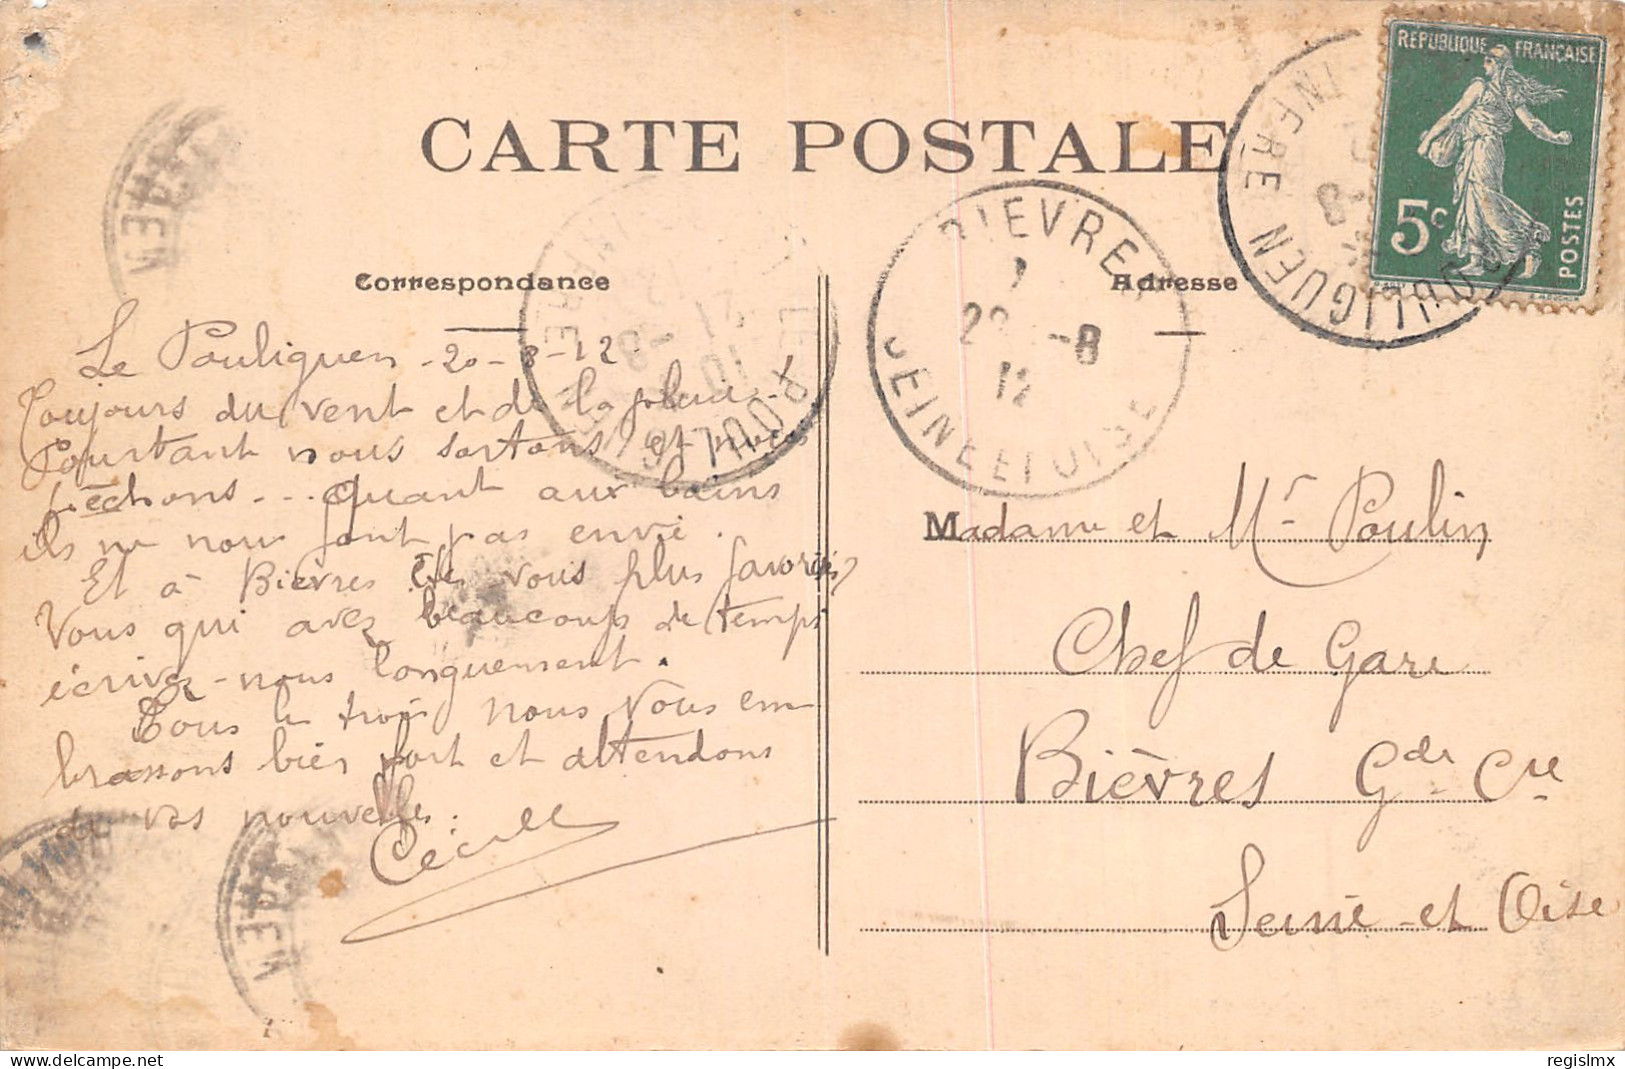 CARTE POSTALE
REPUBLIQUE FRANÇAISE
5c
POSTES
Correspondance
Adresse
BIEVRES
22 -8
12
SEINE ET OISE
LE POULIGUEN
INFRE
Le Pouliguen - 20-8-12.
Toujours du vent et de la pluie!
Pourtant nous sortons et nous
pêchons... Quant aux bains
ils ne nous font pas envie.
Et à Bièvres êtes vous plus favorisés?
Vous qui avez beaucoup de temps
écrivez-nous longuement.
Tous les trois nous vous em
brassons bien fort et attendons
de vos nouvelles.
Cécile
Madame et Mr Poulin
Chef de Gare
Bièvres Gde Cre
Seine-et Oise
regislmx
delcampe.net